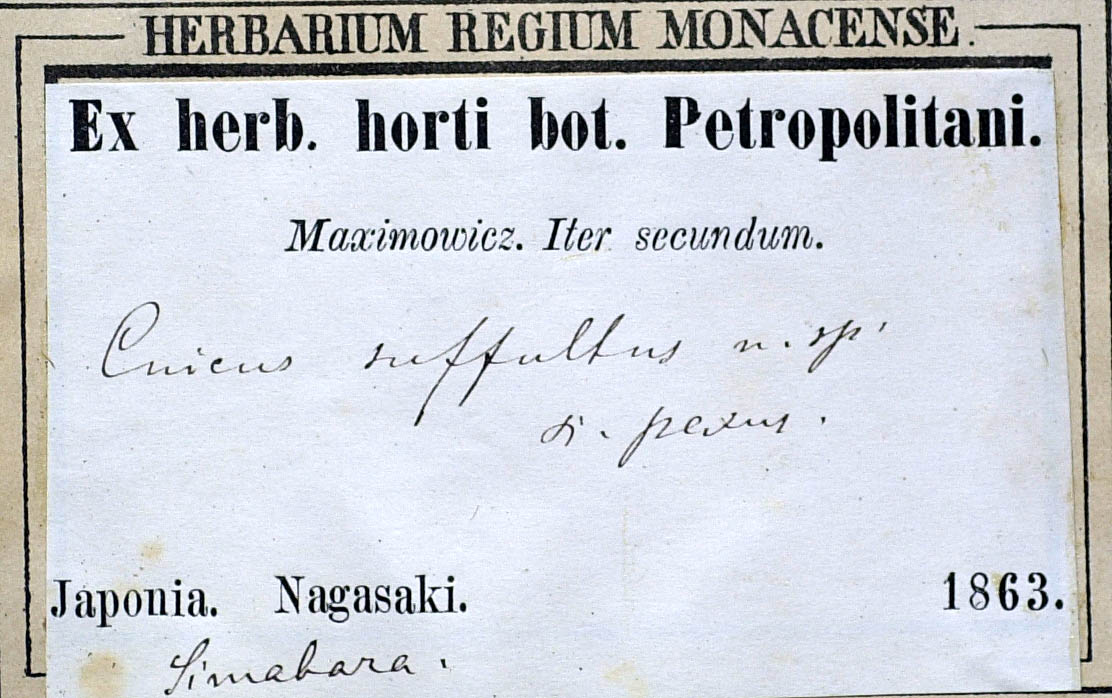 HERBARIUM REGIUM MONACENSE.
Ex herb. horti bot. Petropolitani.
Maximowicz. Iter secundum.
Cnicus suffultus n. sp.
pexus.
Japonia. Nagasaki. 1863.
Simabara.